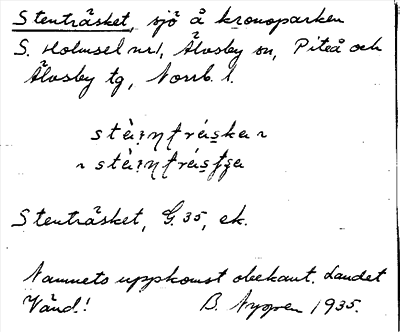 Stenträsket, sjö å kronoparken
S. Holmsel nr 1, Älvsby sn, Piteå och
Älvsby tg, Norrb. l.
Stenträsket, G. 35, ek.
Namnets uppkomst obekant. Landet
Vänd! B. Nygren 1935.